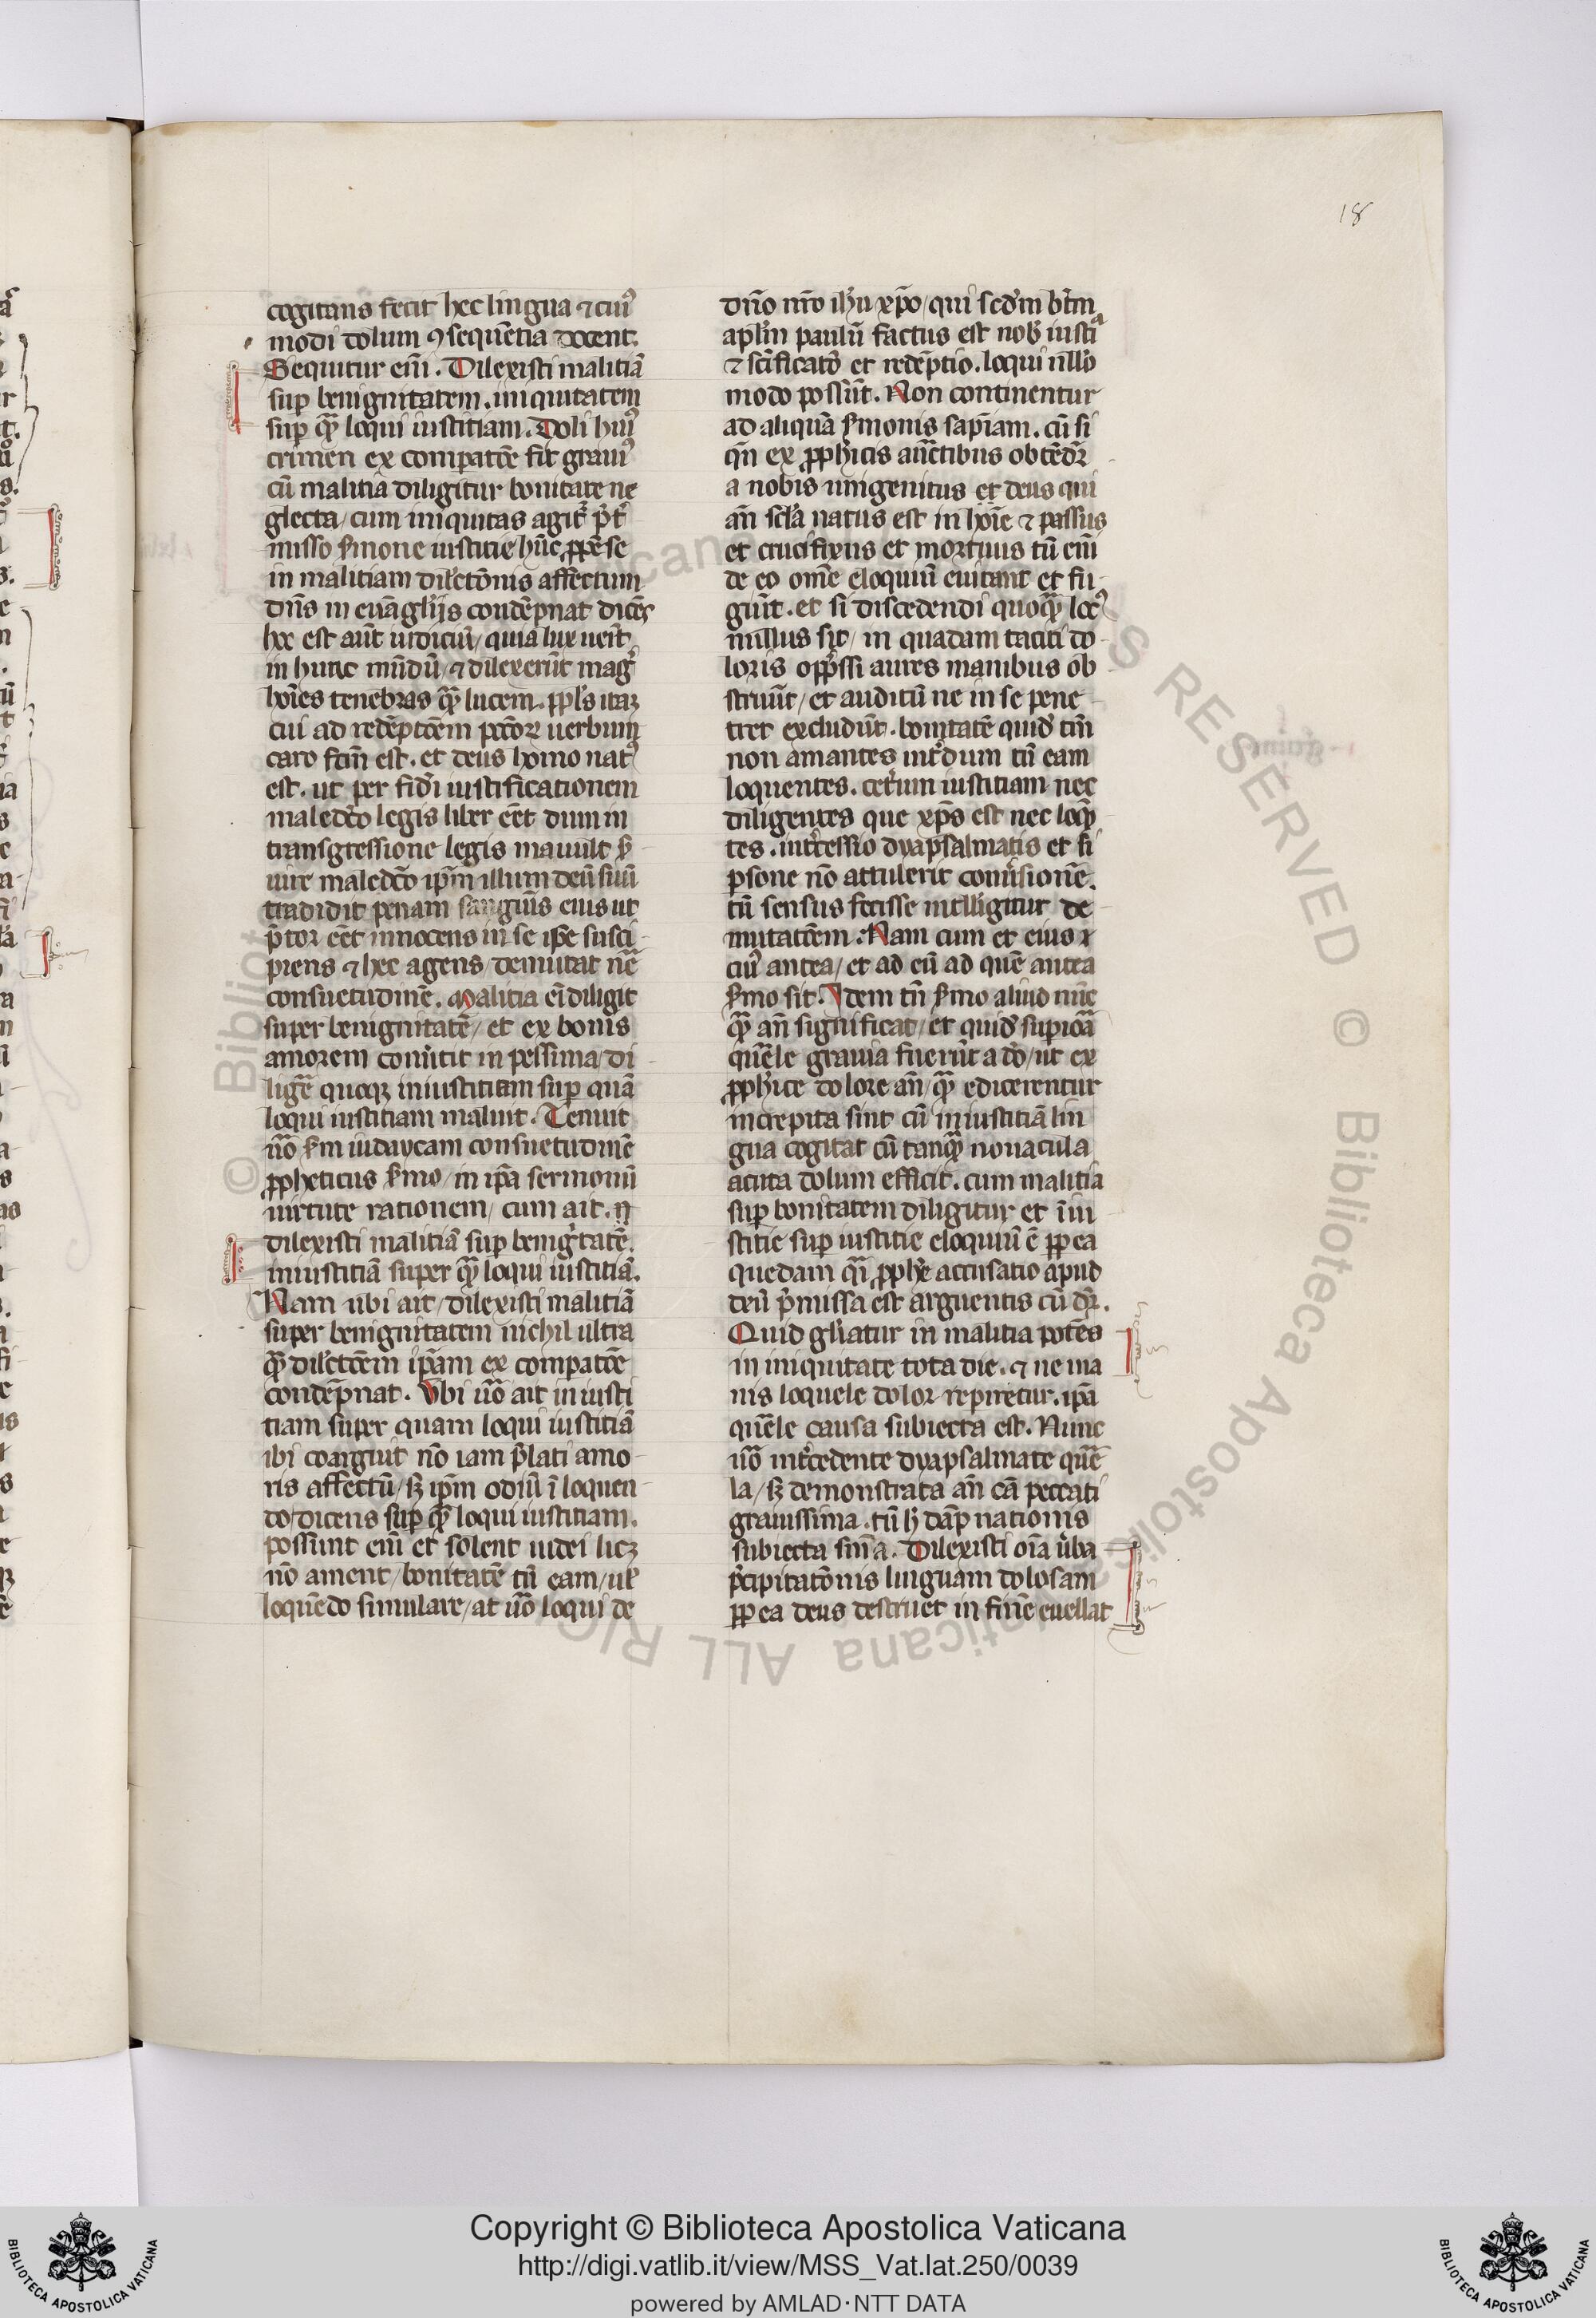 18
cogitans fecit hec lingua ⁊ cuiꝰ
modi dolum ꝯsequẽtia docent.
Sequitur eñi. Dilexisti malitiã
suꝑ benignitatem. iniquitatem
suꝑ qᷓ loqui iustitiam. Doli huiꝰ
crimen ex comparatõe fit grauiꝰ
cũ malitia diligitur bonitate ne
glecta / cum iniquitas agit᷑
misso ẜmone iustitie
in malitiam dilectõnis affectum
dñs in euãglijs condẽpnat dicẽs
hec est aũt iudiciũ / quia lux ueñit
in hunc mũdũ / ⁊ dilexerũt magꝭ
hoĩes tenebras qᷓ lucem. ppl̃s itaqꝫ
cui ad redẽptõem pctõꝝ uerbum
caro fc̃m est. et deus homo natꝰ
est. ut per fidei iustificationem
maledc̃o legis liber eẽt dum in
transgressione legis mauult
uire maledc̃o ip̃m illum deũ suũ
tradidit penam sanguĩs eius ut
p̃tor eẽt innocens in se ip̃e susci
piens ⁊ hec agens / demutat
consuetudinẽ. Malitia eĩ diligit
super benignitatẽ / et ex bonis
amorem conũtit in pessima / di
ligẽ quoqꝫ iniustitiam suꝑ quã
loqui iustitiam maluit. Tenuit
ũo ẜm iudaycam consuetudinẽ
ꝓpheticus ẜmo / in ip̃a sermonũ
uirtute rationem / cum ait.
dilexisti malitiã suꝑ benigͥtatẽ.
iniustitiã super qᷓ loqui iustitiã.
Nam ubi ait / dilexisti malitiã
super benignitatem nichil ultra
qᷓ dilectõem ip̃am ex comparatõe
condẽpnat. Ubi ũo ait iniusti
tiam super quam loqui iustitiã
ibi coarguit nõ iam p̃lati amo
ris affectũ / sꝫ ip̃m odiũ ĩ loquen
do / dicens suꝑ qᷓ loqui iustitiam.
possunt eñi et solent iudei licꝫ
nõ ament / bonitatẽ tñ eam / uel
loquẽdo simulare / at ũo loqui de
dño nr̃o ihũ xp̃o / qui scd̃m bt̃m
apl̃m paulũ factus est nob̃ iustiᵃ
⁊ sc̃ificatõ et redẽptio. loqui nullo
modo possũt. Non continentur
ad aliquã ẜmonis sapĩam. cũ si
qñ ex ꝓphicis auctibus obtẽdr̃
a nobis unigenitus et deus qui
añ sc̃la natus est in hoĩe ⁊ passus
et crucifixus et mortuus tũ eñi
de eo omẽ eloquiũ euitant et fu
giũt. et si discedendi quoqᷓ locꝰ
nullus sit / in quadam taciti do
loris opp̃ssi aures manibus ob
struũt / et auditũ ne in se pene
tret excludũt. bonitatẽ quid̃ tñ
non amantes int̃dum tñ eam
loquentes. cet̃um iustitiam nec
diligentes que xp̃s est nec loqᷓ
tes. int̃cessio dyapsalmatis et si
ꝑsone nõ attulerit conũsionẽ.
tñ sensus fecisse intelligitur de
mutatõem. Nam cum et eius
ciuꝰ antea / et ad eũ ad quẽ antea
ẜmo sit. Idem tñ ẜmo aliud nũc
qᷓ añ significat / et quid̃ supioã
querele grauia fuerũt a dõ / ut ex
ꝓphice dolore añ / qᷓ edicerentur
increpita sint cũ iniustitiã lin
gua cogitat cũ tanqᷓ nouacula
acuta dolum efficit. cum malitia
suꝑ bonitatem diligitur et ĩiu
stitie suꝑ iustitie eloquiũ ẽ ꝓpea
quedam qĩ ꝓphẽ accusatio apud
deũ p̃missa est arguentis cũ dr̃.
Quid gl̃iatur in malitia potẽs
in iniquitate tota die. ⁊ ne ina
nis loquele dolor repiretur. ip̃a
querele causa subiecta est. Nunc
ũo int̃cedente dyapsalmate que
la / sꝫ demonstrata añ cã peccati
grauissima. tũ hꝫ dãpnationis
subiecta snĩa. Dilexisti oĩa ũba
p̃cipitatõnis linguam dolosam
ꝓpea deus destruet in finẽ euellat
Copyright © Biblioteca Apostolica Vaticana
http://digi.vatlib.it/view/MSS_Vat.lat.250/0039
powered by AMLAD·NTT DATA
BIBLIOTECA APOSTOLICA VATICANA
BIBLIOTECA APOSTOLICA VATICANA